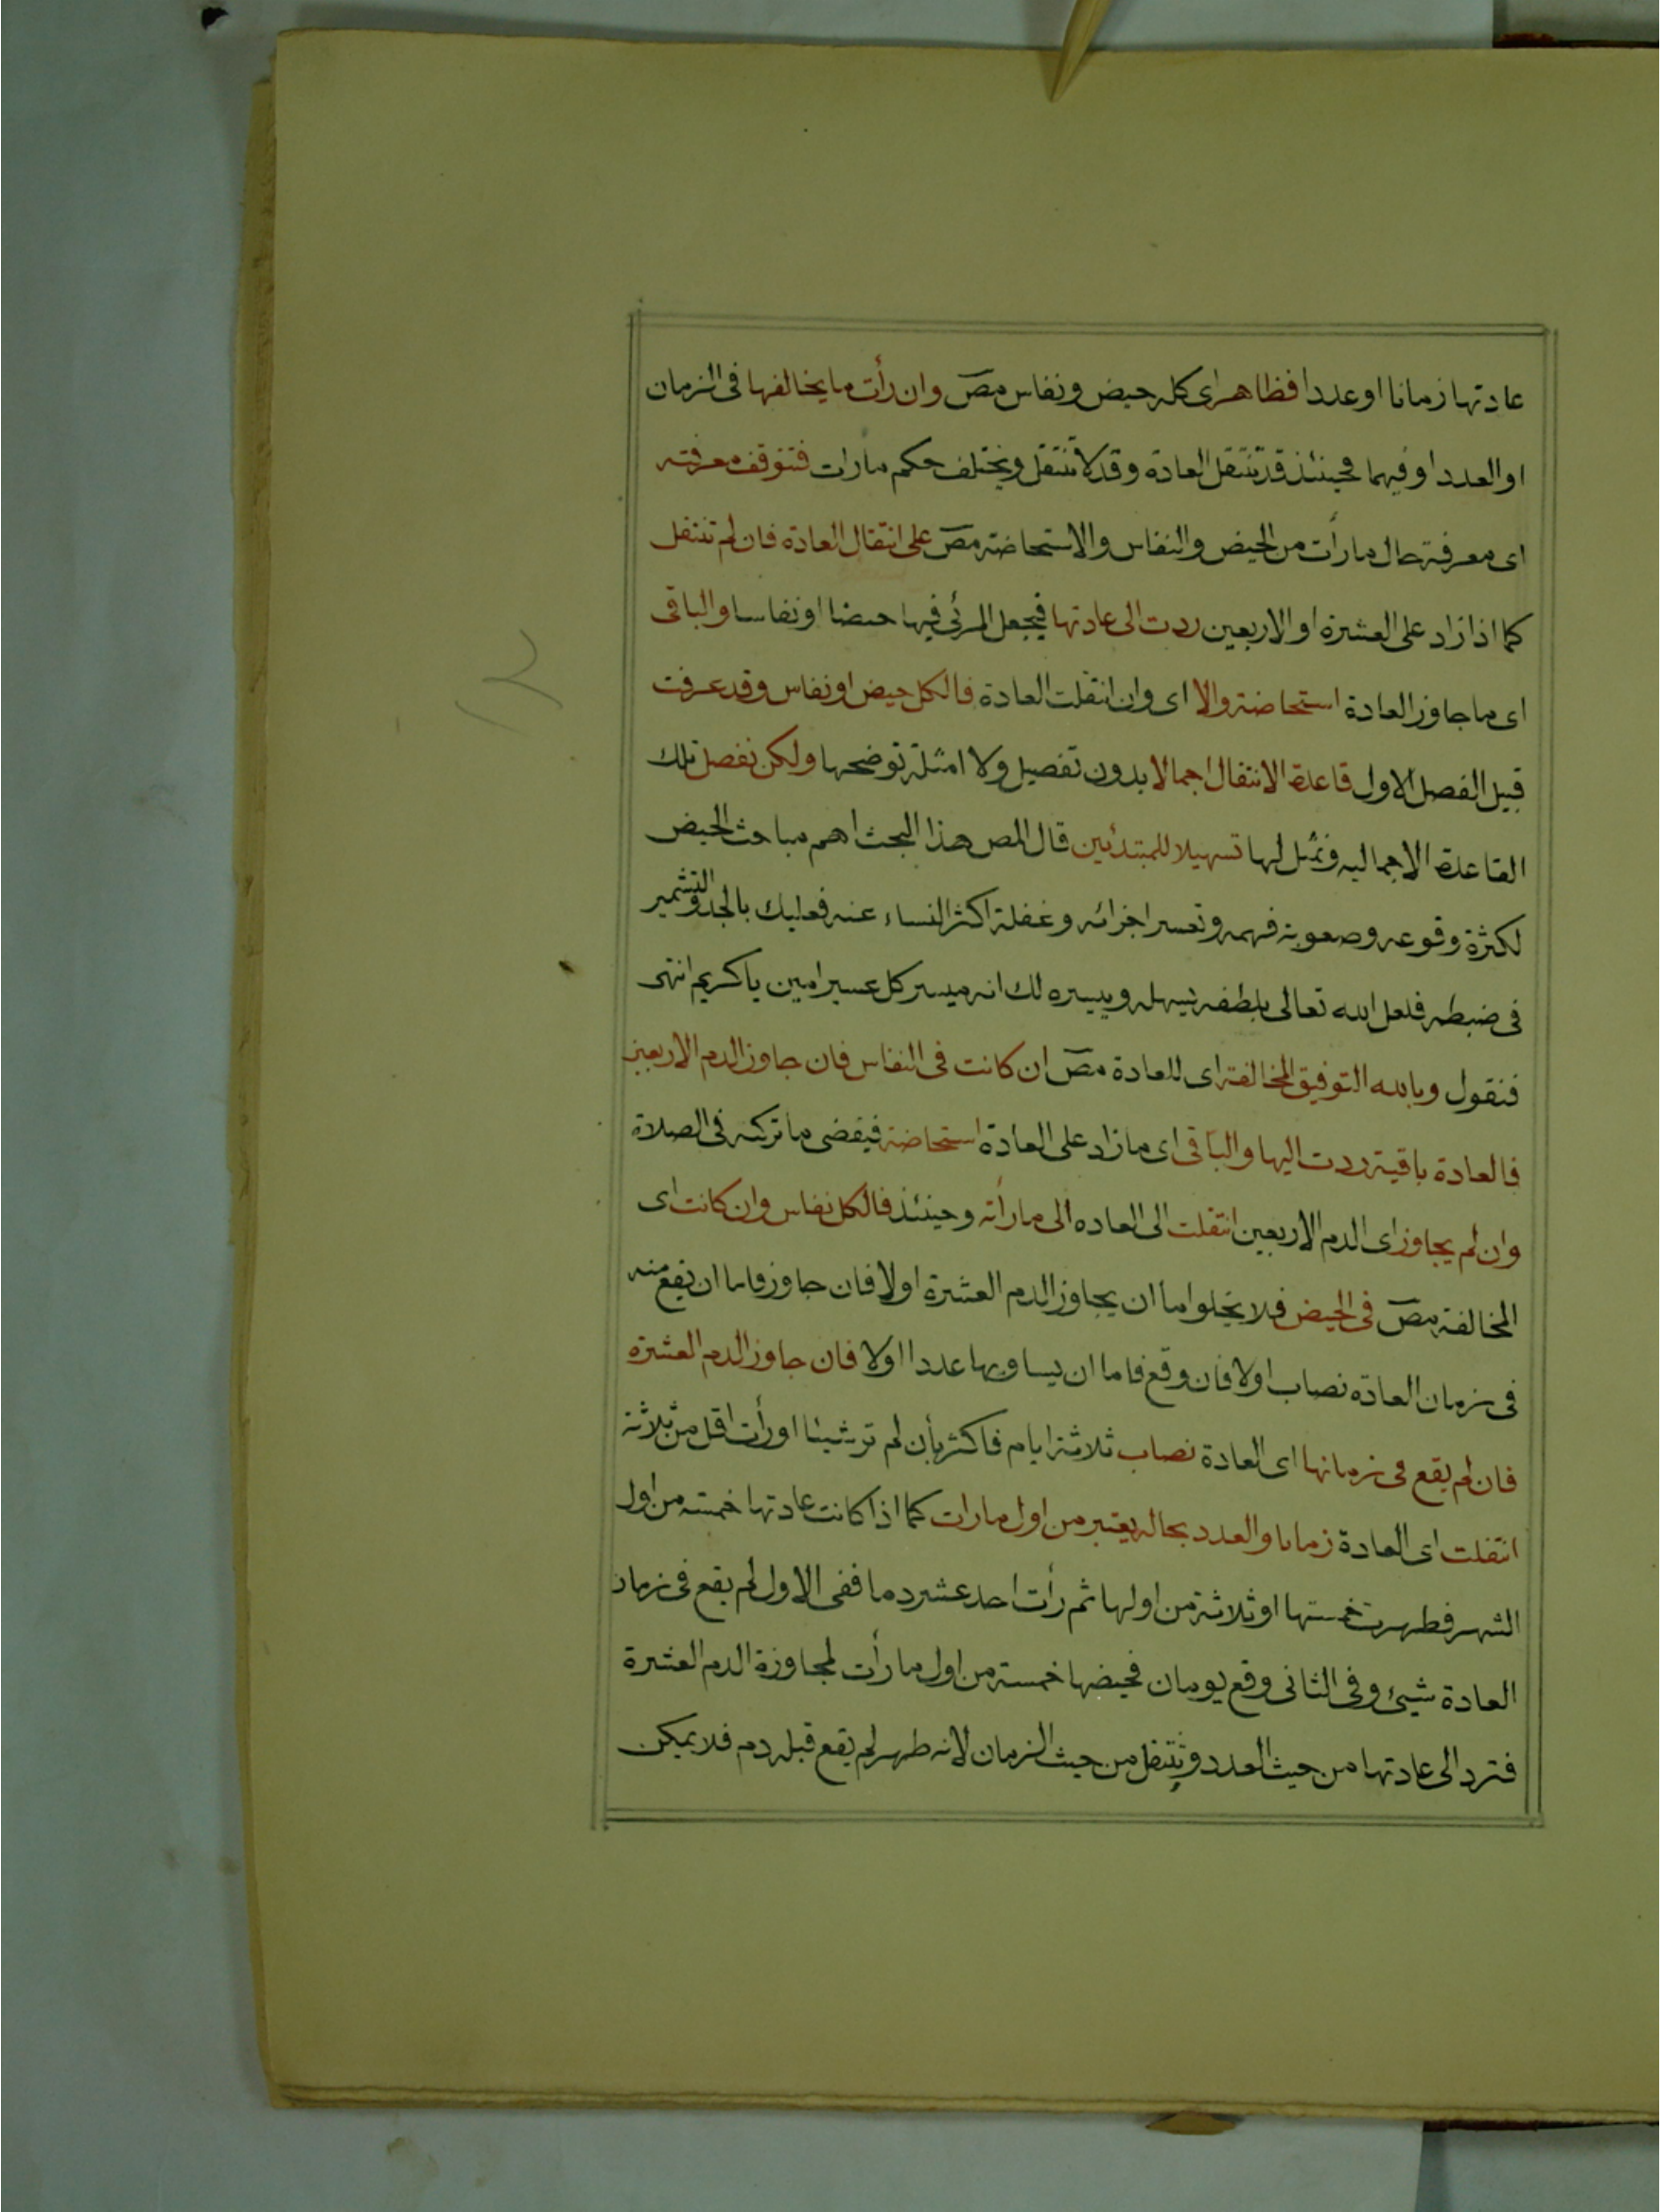 عادتها زمانا او عددا فظاهر اى كله حيض ونفاس مصَ وان رأت ما يخالفها فى الزمان
او العدد او فيهما فحينئذ قد تنتقل العادة وقد لا تنتقل ويختلف حكم مارات فتتوقف معرفته
اى معرفة حال مارأت من الحيض والنفاس والاستحاضة مصَ على انتقال العادة فان لم تنتقل
كما اذا زاد على العشرة او الاربعين ردت الى عادتها فيجعل المرئى فيها حيضا او نفاسا والباقى
اى ما جاوز العادة استحاضة والا اى وان انتقلت العادة فالكل حيض او نفاس وقد عرفت
قبيل الفصل الاول قاعدة الانتقال اجمالا بدون تفصيل ولا امثلة توضحها ولكن نفصل تلك
القاعدة الاجماليه ونمثل لها تسهيلا للمبتدئين قال المص هذا البحث اهم مباحث الحيض
لكثرة وقوعه وصعوبة فهمه وتعسر اجرائه وغفلة اكثر النساء عنه فعليك بالجد والتشمير
فى ضبطه فلعل الله تعالى بلطفه يسهله وييسره لك انه ميسر كل عسير امين يا كريم انتهى
فنقول وبالله التوفيق المخالفة اى للعادة مصَ ان كانت فى النفاس فان جاوز الدم الاربعين
فالعادة باقية ردت اليها والباقى اى مازاد على العادة استحاضة فيقضى ما تركته فى الصلاة
وان لم يجاوز اى الدم الاربعين انتقلت الى العاده الى مارأته وحينئذ فالكل نفاس وان كانت اى
المخالفة مصَ فى الحيض فلا يخلوا اما ان يجاوز الدم العشرة اولا فان جاوز فاما ان يقع منه
فى زمان العادة نصاب اولا فان وقع فاما ان يساويها عددا اولا فان جاوز الدم العشرة
فان لم يقع فى زمانها اى العادة نصاب ثلاثة ايام فاكثر بأن لم تر شيئا او رأت اقل من ثلاثة
انتقلت اى العادة زمانا والعدد بحاله يعتبر من اول مارات كما اذا كانت عادتها خمسة من اول
الشهر فطهرت خمستها او ثلاثة من اولها ثم رأت احد عشر دما ففى الاول لم يقع فى زمان
العادة شيئ وفى الثانى وقع يومان فحيضها خمسة من اول مارأت لمجاوزة الدم العشرة
فترد الى عادتها من حيث العدد وتنتقل من حيث الزمان لانه طهر لم يقع قبله دم فلا يمكن